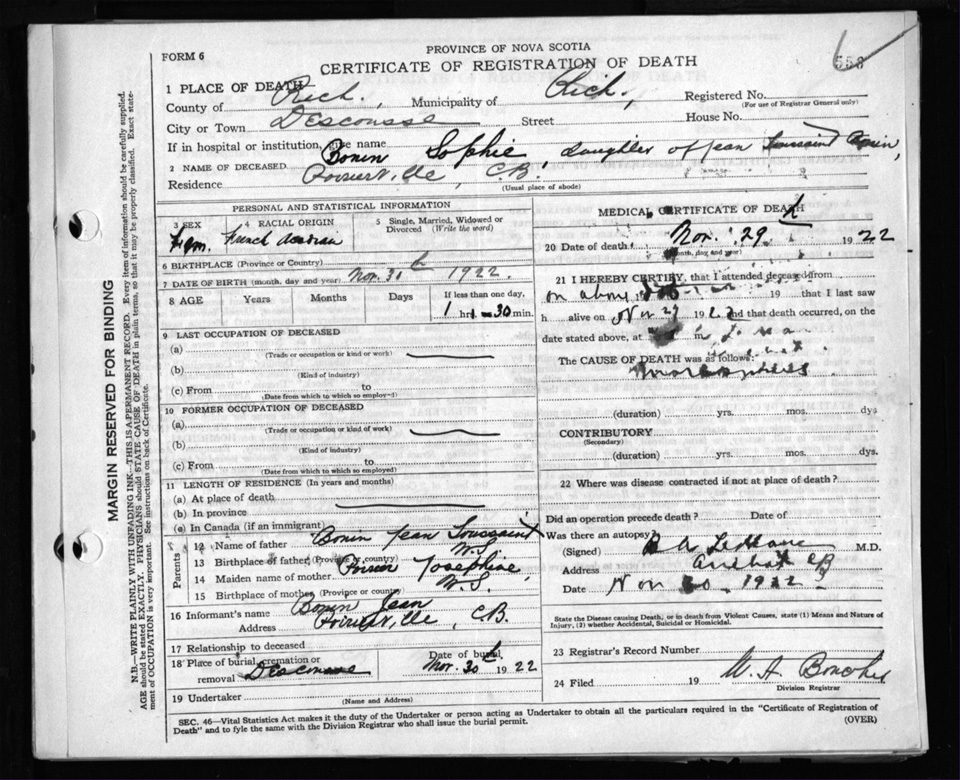 PROVINCE OF NOVA SCOTIA
FORM 6
CERTIFICATE OF REGISTRATION OF DEATH
558
1 PLACE OF DEATH
County of Rich., Municipality of Rich., Registered No.
(For use of Registrar General only)
City or Town Descousse Street House No.
If in hospital or institution, give name
2 NAME OF DECEASED Bonin Sophie, daughter of Jean Toussaint Bonin,
Residence Poirierville, C.B.
(Usual place of abode)
PERSONAL AND STATISTICAL INFORMATION
3 SEX 4 RACIAL ORIGIN 5 Single, Married, Widowed or Divorced (Write the word)
Fem. French Acadian
6 BIRTHPLACE (Province or Country)
7 DATE OF BIRTH (month, day and year) Nov. 1922.
8 AGE Years Months Days If less than one day,
1 hr. 30 min.
9 LAST OCCUPATION OF DECEASED
(a)
(Trade or occupation or kind or work)
(b)
(Kind of industry)
(c) From to
(Date from which to which so employed)
10 FORMER OCCUPATION OF DECEASED
(a)
(Trade or occupation or kind of work)
(b)
(Kind of industry)
(c) From to
(Date from which to which so employed)
11 LENGTH OF RESIDENCE (In years and months)
(a) At place of death
(b) In province
(c) In Canada (if an immigrant)
Parents
12 Name of father Bonin Jean Toussaint
13 Birthplace of father (Province or country) N.S.
14 Maiden name of mother Poirier Josephine
15 Birthplace of mother (Province or country) N.S.
16 Informant's name Bonin Jean
Address Poirierville, C.B.
17 Relationship to deceased
18 Place of burial, cremation or removal Descousse Date of burial Nov. 30th 1922
19 Undertaker
(Name and Address)
MEDICAL CERTIFICATE OF DEATH
20 Date of death Nov. 29th 1922
(month, day and year)
21 I HEREBY CERTIFY, that I attended deceased from
on above 19 that I last saw
h alive on Nov 29 1922 and that death occurred, on the
date stated above, at m
The CAUSE OF DEATH was as follows:
(duration) yrs. mos. dys
CONTRIBUTORY
(Secondary)
(duration) yrs. mos. dys.
22 Where was disease contracted if not at place of death?
Did an operation precede death? Date of
Was there an autopsy?
(Signed) M.D.
Address Arichat CB
Date Nov 30 1922
State the Disease causing Death, or in death from Violent Causes, state (1) Means and Nature of
Injury, (2) whether Accidental, Suicidal or Homicidal.
23 Registrar's Record Number
24 Filed 19 W. A.
Division Registrar
SEC. 46—Vital Statistics Act makes it the duty of the Undertaker or person acting as Undertaker to obtain all the particulars required in the "Certificate of Registration of
Death" and to fyle the same with the Division Registrar who shall issue the burial permit.
(OVER)
MARGIN RESERVED FOR BINDING
N.B.—WRITE PLAINLY WITH UNFADING INK—THIS IS A PERMANENT RECORD. Every item of information should be carefully supplied.
AGE should be stated EXACTLY. PHYSICIANS should STATE CAUSE OF DEATH in plain terms, so that it may be properly classified. Exact statement of OCCUPATION is very important. See instructions on back of Certificate.